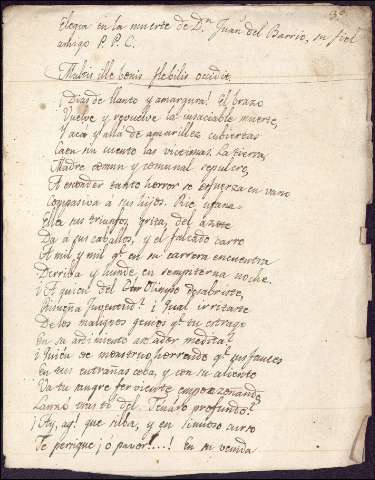 Elegia en la muerte de Dⁿ Juan del Barrio, su fiel
amigo P. P. C.
Multis ille bonis flebilis occidit
¡Dias de llanto y amargura! El brazo
Vuelve y revuelve la insaciable muerte,
Y acá y allá de amarillez cubiertas
Caen sin cuento las victimas. La tierra,
Madre comun y comunal sepulcro,
A esconder tanto horror se esfuerza en vano
Compasiva á sus hijos. Rie ufana
Ella sus triunfos, grita, del azote
Da á sus caballos, y el falcado carro
A mil y mil q.e en su carrera encuentra
Derriba y hunde en sempiterna noche.
¿A quien del Olimpo desabriste,
Risueña Juventud? ¿Qual irritaste
De los malignos genios q.e tu estrago
En su ardimiento asolador medita?
¿Quien ese monstruo horrendo q.e sus fauces
En tus entrañas ceba, y con su aliento
Va tu sangre ferviente emponzoñando
Lanzó tras ti del Tenaro profundo?
¡Ay, ay! que silba, y en sinuoso curso
Te persigue ¡o pavor!...! En su